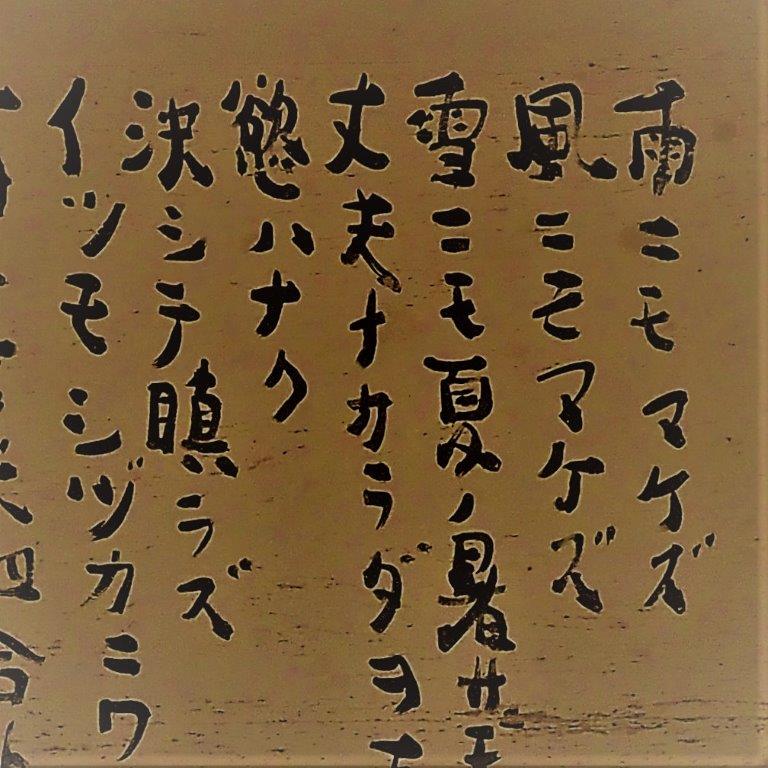 雨ニモマケズ
風ニモマケズ
雪ニモ夏ノ暑サ
丈夫ナカラダヲ
慾ハナク
決シテ瞋ラズ
イツモシヅカニワ
四合